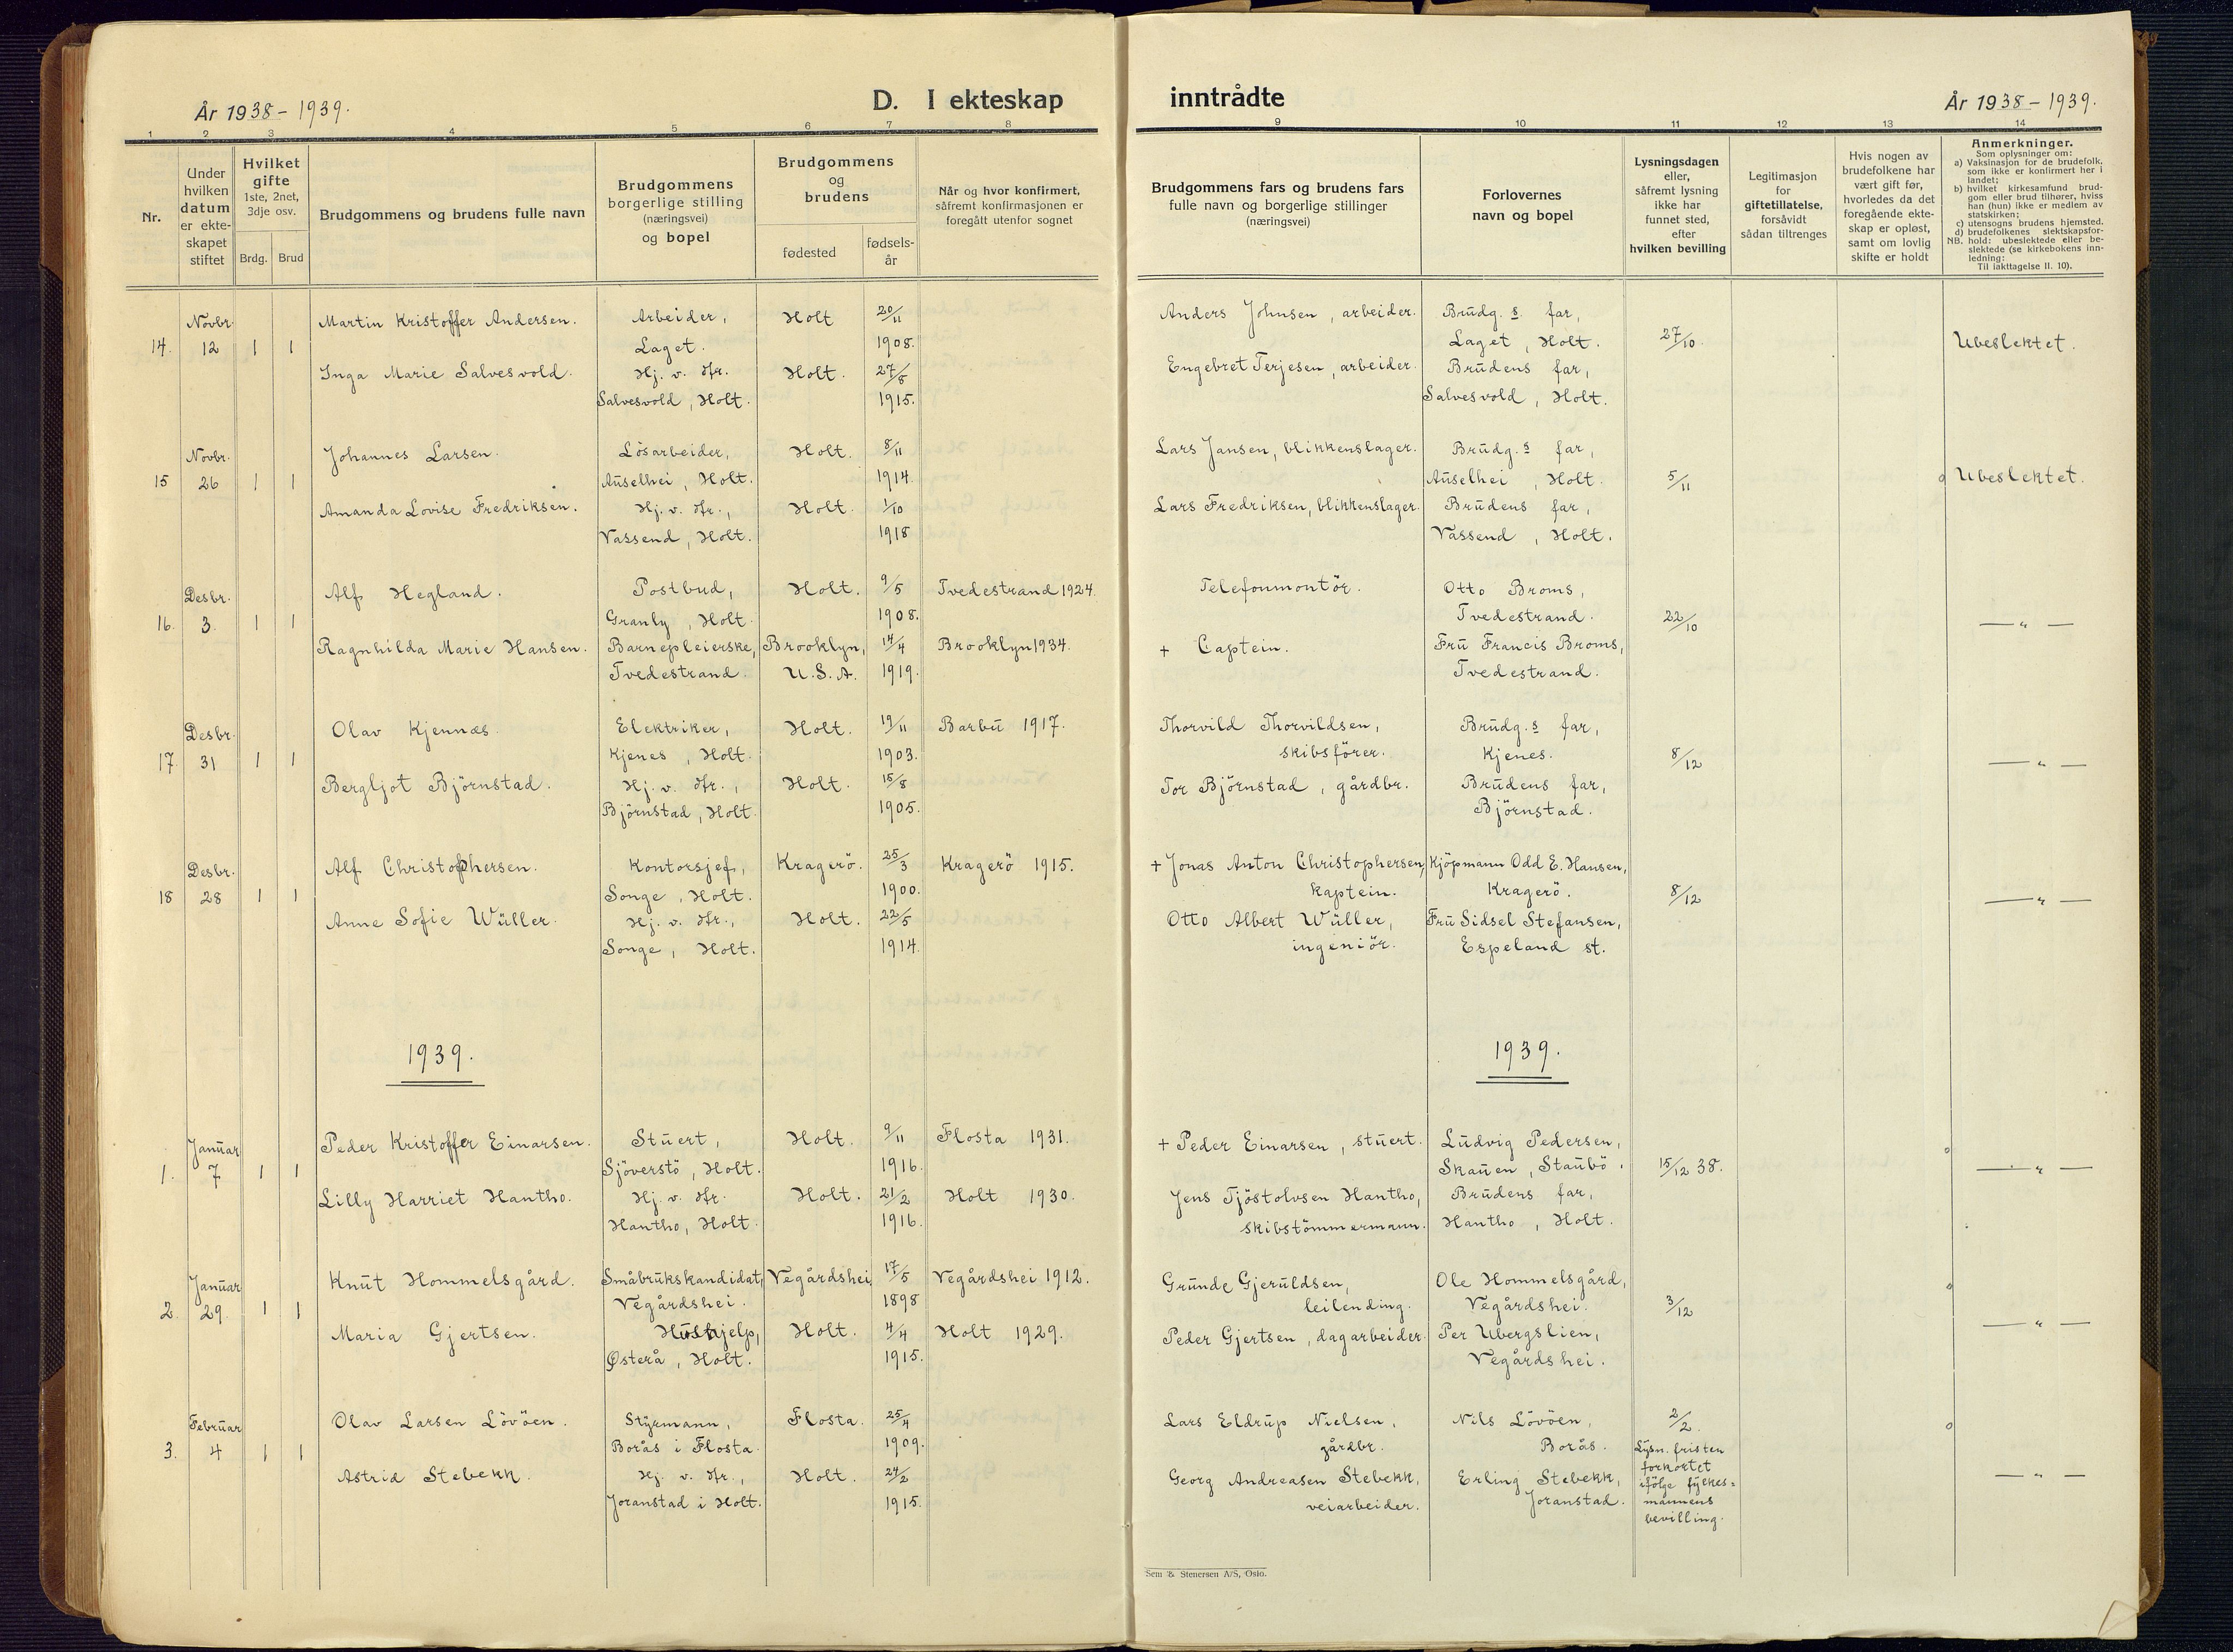 År 1938 - 1939.
D. I ekteskap
inntrådte
År 1938 - 1939.
1 2 3 4 5 6 7 8
9 10 11 12 13 14
Nr.
Under
hvilken
datum
er ekte-
skapet
stiftet
Hvilket
gifte
1ste, 2net,
3dje osv.
Brdg. Brud
Brudgommens og brudens fulle navn
Brudgommens
borgerlige stilling
(næringsvei)
og bopel
Brudgommens
og
brudens
fødested
fødsels-
år
Når og hvor konfirmert,
såfremt konfirmasjonen er
foregått utenfor sognet
Brudgommens fars og brudens fars
fulle navn og borgerlige stillinger
(næringsvei)
Forlovernes
navn og bopel
Lysningsdagen
eller,
såfremt lysning
ikke har
funnet sted,
efter
hvilken bevilling
Legitimasjon
for
giftetillatelse,
forsåvidt
sådan tiltrenges
Hvis nogen av
brudefolkene har
vært gift før,
hvorledes da det
foregående ekte-
skap er opløst,
samt om lovlig
skifte er holdt
Anmerkninger.
Som oplysninger om:
a) Vaksinasjon for de brudefolk,
som ikke er konfirmert her i
landet;
b) hvilket kirkesamfund brud-
gom eller brud tilhører, hviss
han (hun) ikke er medlem av
statskirken;
c) utensogns brudens hjemsted.
d) brudefolkenes slektskapsfor-
NB. hold: ubeslektede eller be-
slektede (se kirkebokens inn-
ledning:
Til iakttagelse II. 10).
Novbr. Martin Kristoffer Andersen. Arbeider, Holt 20/11 Anders Johnsen, arbeider. Brudg.s far,
14. 12 1 1 Laget. 1908. Laget, Holt. 27/10. Ubeslektet.
Inga Marie Salvesvold. Hj. v. Hr. Holt. 27/8 Engebret Terjesen, arbeider. Brudens far,
Salvesvold, Holt. 1915. Salvesvold, Holt.
Novbr. Johannes Larsen. Lösarbeider, Holt. 8/11 Lars Jansen, blikkenslager. Brudg.s far,
15 26 1 1 Auselhei, Holt. 1914. Auselhei, Holt. 5/11 Ubeslektet.
Amanda Lovise Fredriksen. Hj. v. Hr., Holt. 1/10 Lars Fredriksen, blikkenslager. Brudens far,
Vassend, Holt. 1918 Vassend, Holt.
Desbr. Alf Hegland. Postbud, Holt. 9/5 Tvedestrand 1924. Telefonmontör. Otto Broms,
16. 3. 1 1 Granly, Holt. 1908. Tvedestrand. 22/10 — " —
Ragnhilda Marie Hansen. Barnepleierske, Brooklyn, 14/4 Brooklyn 1934. + Captein. Fru Francis Broms,
Tvedestrand. U.S.A. 1919. Tvedestrand.
Desbr. Olav Kjennæs. Elektriker, Holt. 19/11 Barbu 1917. Thorvild Thorvildsen, Brudg.s far,
17. 31 1 1 Kjenes, Holt. 1903. skibsförer. Kjenes. 8/12 — " —
Bergljot Björnstad. Hj. v. Hr., Holt. 15/8 Tor Björnstad, gårdbr. Brudens far,
Björnstad, Holt. 1905. Björnstad.
Desbr. Alf Christophersen. Kontorsjef, Kragerö. 25/3 Kragerö 1915. + Jonas Anton Christophersen, Kjöpmann Odd E. Hansen,
18 28 1 1 Songe, Holt. 1900. kaptein. Kragerö. 8/12 — " —
Anne Sofie Wüller. Hj. v. Hr., Holt. 22/5 Otto Albert Wüller, Fru Sidsel Stefansen,
Songe, Holt. 1914. ingeniör. Espeland st.
1939.
1939.
Januar Peder Kristoffer Einarsen. Stuert, Holt. 9/11 Flosta 1931. + Peder Einarsen, stuert. Ludvig Pedersen,
1. 7 1 1 Sjöverstö, Holt. 1916. Skauen, Staubö. 15/12 38. — " —
Lilly Harriet Hantho. Hj. v. Hr. Holt. 21/2 Holt 1930. Jens Tjöstolvsen Hantho, Brudens far,
Hantho, Holt. 1916. skibstömmermann. Hantho, Holt.
Januar Knut Hommelsgård. Småbrukskandidat, Vegårdshei, 17/5 Vegårdshei 1912. Grunde Gjeruldsen, Ole Hommelsgård,
2. 29. 1 1 Vegårdshei. 1898 leilending. Vegårdshei. 3/12 — " —
Maria Gjertsen. Hushjelp, Holt. 4/4 Holt 1929. Peder Gjertsen, dagarbeider. Per Ubergslien,
Østerå, Holt. 1915. Vegårdshei.
Februar Olav Larsen Lövöen. Styrmann, Flosta. 25/4 Lars Eldrup Nielsen, Nils Lövöen, 2/2.
3. 4 1 1 Borås i Flosta. 1909. gårdbr. Borås. Lysn. fristen
forkortet
Astrid Stebekk. Hj. v. Hr., Holt. 24/2 Georg Andreasen Stebekk, Erling Stebekk, ifölge fylkes= — " —
Joranstad i Holt. 1915. veiarbeider. Joranstad. mannens
bevilling.
Sem & Stenersen A/S, Oslo.